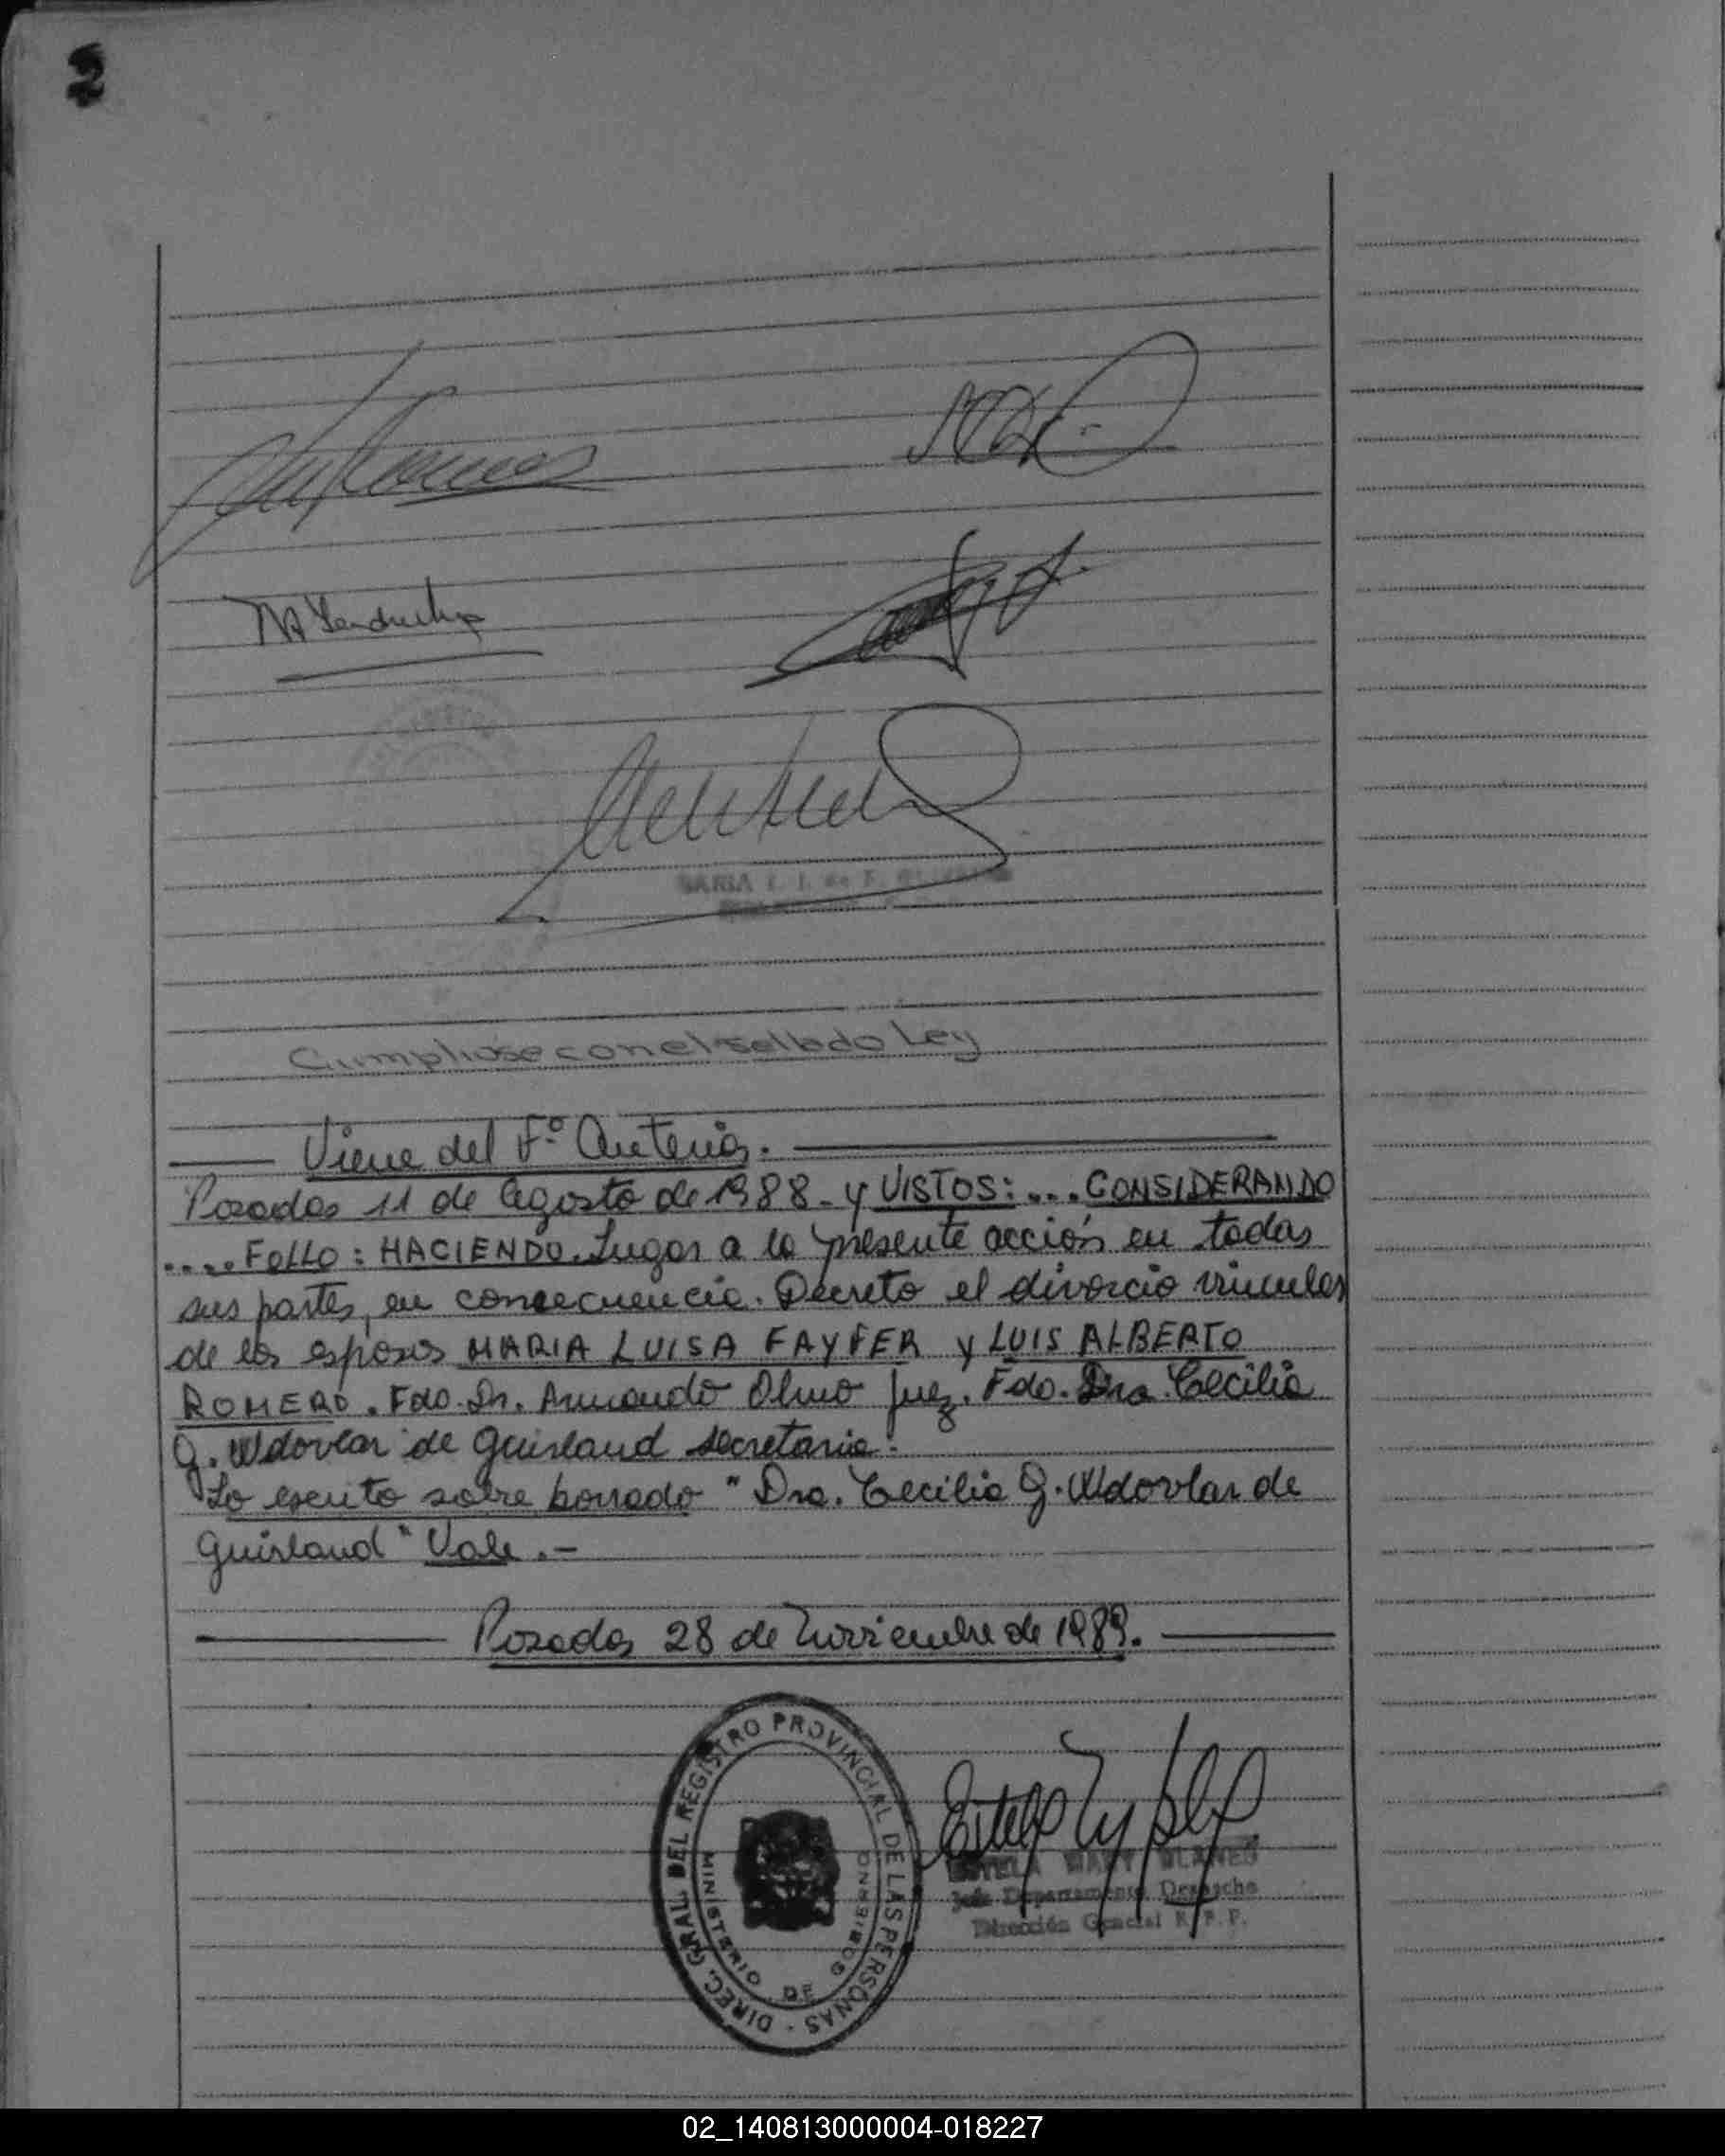 2
Cumpliose con el sellado Ley
Viene del Fº Anterior.
Posadas 11 de Agosto de 1988 - y VISTOS: .... CONSIDERANDO
.... FALLO: HACIENDO. Lugar a la presente acción en todas
sus partes, en concecuencia. Decreto el divorcio vincular
de los esposos MARIA LUISA FAYFER y LUIS ALBERTO
ROMERO. Fdo. Dr. Armando Olmo Juez. Fdo. Dra. Cecilia
G. Widovlar de Guirland secretaria.
Lo escrito sobre borrado "Dra. Cecilia G. Widovlar de
Guirland" Vale.-
Posadas 28 de Noviembre de 1989.
DIREC. GRAL. DEL REGISTRO PROVINCIAL DE LAS PERSONAS -
MINISTERIO DE GOBIERNO
ESTELA MARY BLANES
Jefe Departamento Despacho
Dirección General R. P. P.
02_140813000004-018227